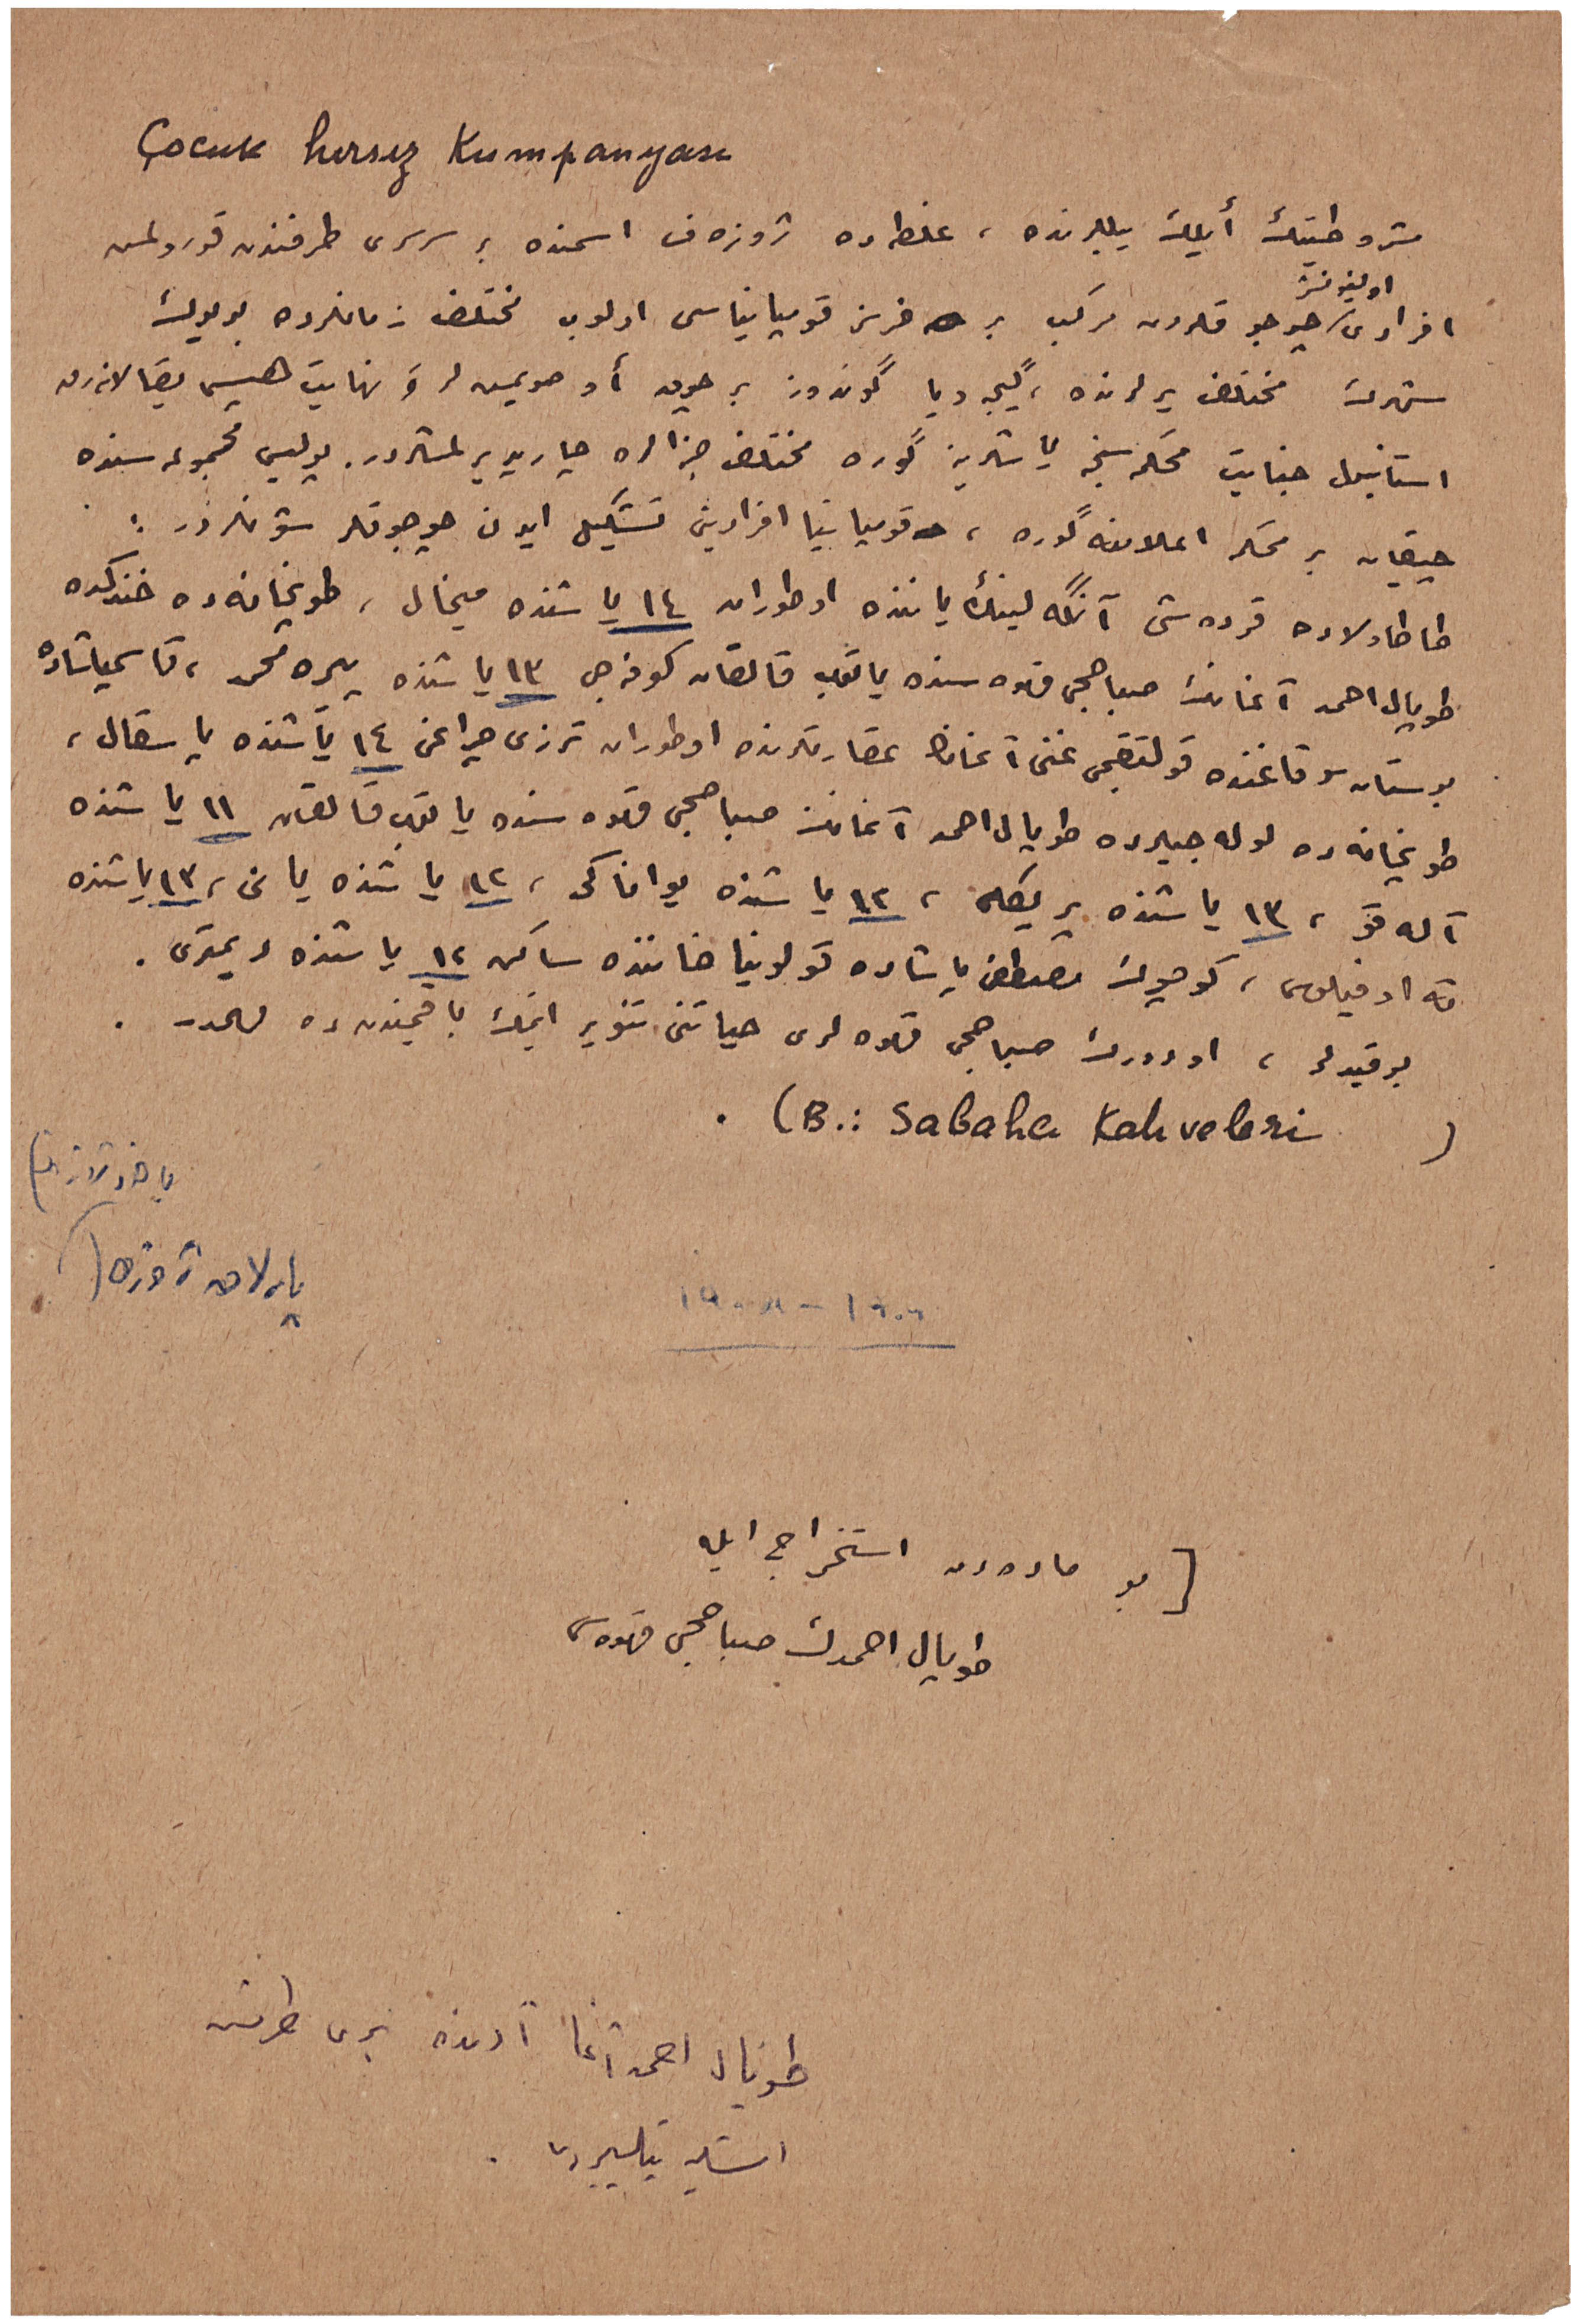 Çocuk hırsız Kumpanyası
مشروطیتك ایلك ییللرنده ، غلطه ده ژوزه ف اسمنده بر سرسری طرفندن قورولمش
اون
افرادی چوجوقلردن مركب بر خرسز قومپانیاسی اولوب مختلف زمانلرده بویوك
شهرك مختلف یرلرنده ، گیجه ویا گوندوز بر چوق أو صویمشلر و نهایت هپسی یقالانه رق
استانبول جنایت محكمه سنجه یاشلرینه گوره مختلف جزالره چارپدیریلمشلردر . پولیس مجموعه سنده
چیقان بر محكمه اعلامنه گوره ، قومپانیا افرادینی تشكیل ایدن چوجوقلر شونلردر :
طاطاولاده قرده شی آنگه لینك یاننده اوطوران ١٤ یاشنده میخال ، طوپخانه ده خندكده
طوپال احمد آغانك صباحجی قهوه سنده یاتوب قالقان كوفه جی ١٣ یاشنده پیره محمد ، قاسمپاشاده
بوستان سوقاغنده قولتقجی غنی آغانك عقارلرنده اوطوران ترزی چراغی ١٤ یاشنده پاسقال ،
طوپخانه ده لوله جیلرده طوپال احمد آغانك صباحجی قهوه سنده یاتوب قالقان ١١ یاشنده
آله قو ، ١٣ یاشنده پریكلی ، ١٢ یاشنده یواناكی ، ١٢ یاشنده یانی ، ١٣ یاشنده
ته اوفیلوس ، كوچوك مصطفی پاشاده قولونیا خاننده ساكن ١٢ یاشنده دیمتری .
بو قیدلر ، او دورك صباحجی قهوه لری حیاتنی تنویر ایتمك باقمیندن ده مهمدر .
(B.: Sabahcı Kahveleri) .
ژوزه ف
١٩٠٨ - ١٩٠٩
[ بو ماده دن استخراج ایله
طوپال احمدك صباحجی قهوه سی
طوپال احمد آغا آدنده بری طرفندن